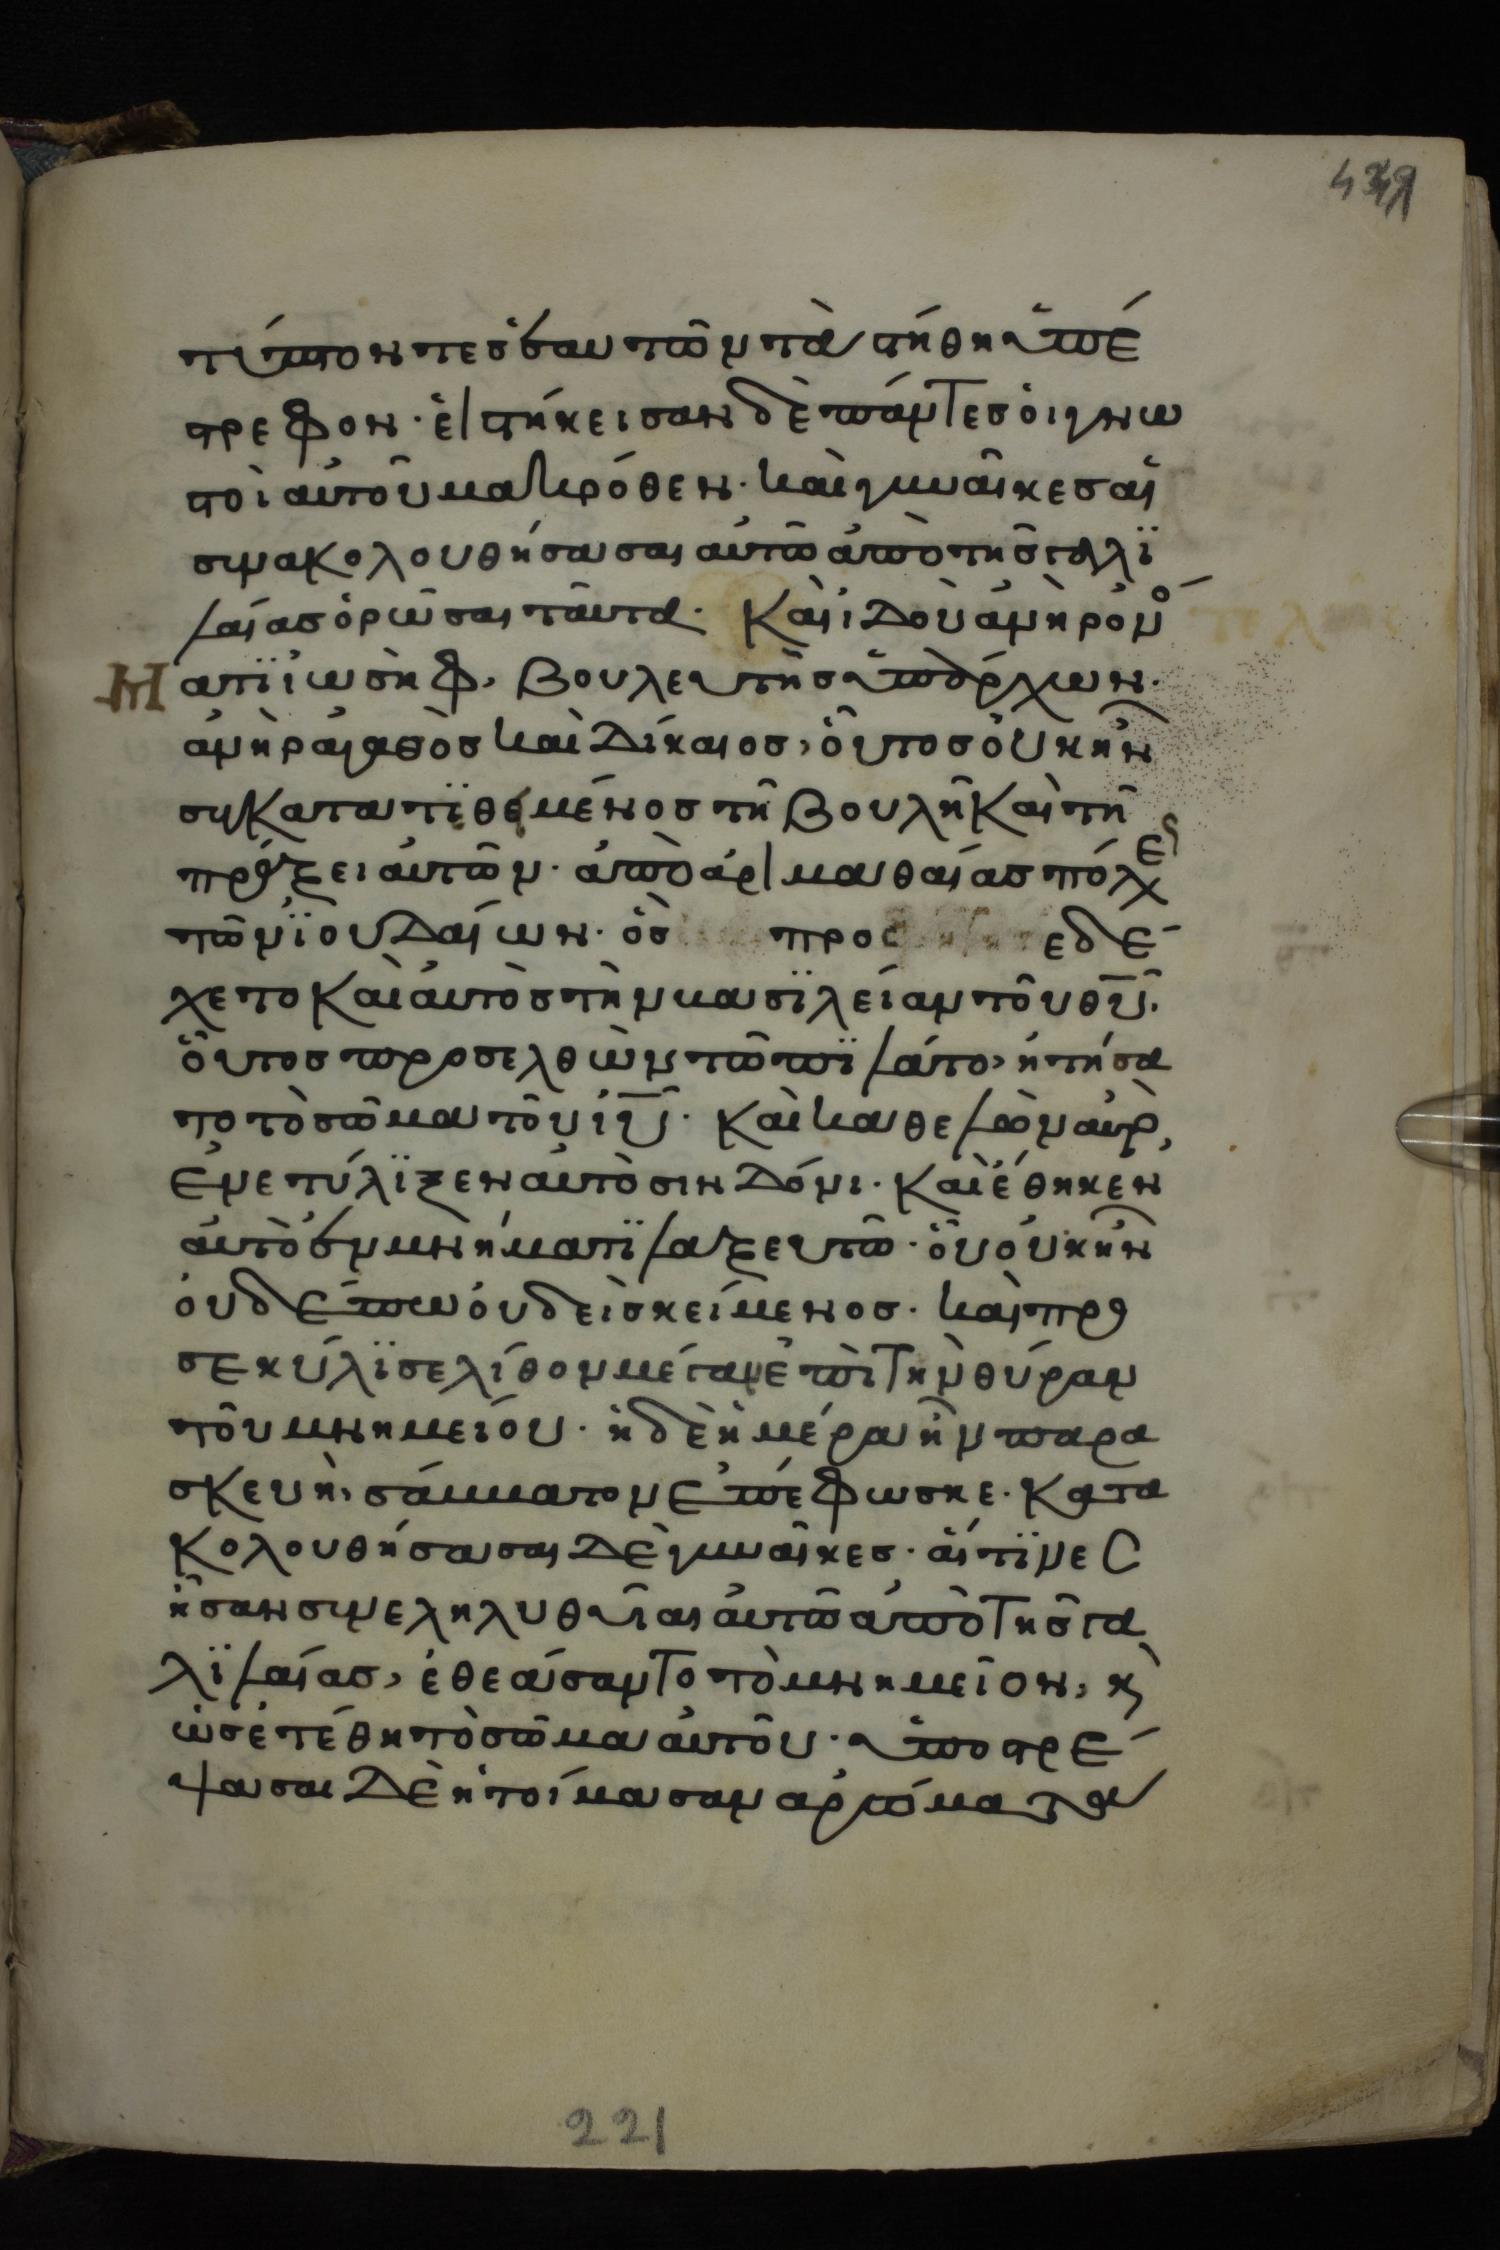 439
τύπτοντες ἑαυτῶν τὰ στήθη ὑπέ
στρεφον· εἱστήκεισαν δὲ πάντες οἱ γνω
στοὶ αὐτοῦ μακρόθεν· καὶ γυναῖκες αἱ
συνακολουθήσασαι αὐτῶ ἀπὸ τῆς γαλϊ
λαίας ὁρῶσαι ταῦτα· Καὶ ἰδοὺ ἀνὴρ ὀνό
Ματϊ ἰωσὴφ, βουλευτὴς ὑπάρχων·
ἀνὴρ ἀγαθὸς καὶ δίκαιος, οὗτος οὐκ ἦν
συγκατατϊθέμενος τῆ βουλῆ καὶ τῆ
πράξει αὐτῶν· ἀπὸ ἀριμαθαίας πόλεως
τῶν ϊουδαίων· ὃς προσ εδέ
χετο καὶ αὐτὸς τὴν βασϊλείαν τοῦ θῦ·
οὗτος προσελθὼν τῶ πϊλάτω, ἠτήσα
το τὸ σῶμα τοῦ ἰῦ· καὶ καθελὼν αὐτὸ,
ἐνετύλϊξεν αὐτὸ σινδόνι· καὶ ἔθηκεν
αὐτὸ ἐν μνήματϊ λαξευτῶ· οὗ οὐκ ἦν
οὐδέπω οὐδεὶς κείμενος· καὶ προ
σεκύλϊσε λίθον μέγαν ἐπὶ τὴν θύραν
τοῦ μνημείου· ἡ δὲ ἡμέρα ἦν παρα
σκευὴ, σάββατον ἐπέφωσκε· κατα
κολουθήσασαι δὲ γυναῖκες· αἵτϊνες
ἦσαν συνεληλυθυῖαι αὐτῶ ἀπὸ τῆς γα
λϊλαίας, ἐθεάσαντο τὸ μνημεῖον, ϗ
ὡς ἐτέθη τὸ σῶμα αὐτοῦ· ὑποστρέ
ψασαι δὲ ἡτοίμασαν ἀρώματα
221